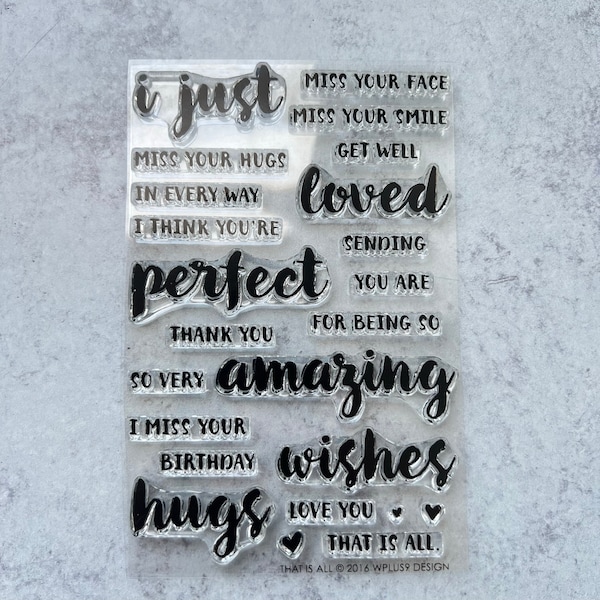 i just
MISS YOUR FACE
MISS YOUR SMILE
MISS YOUR HUGS
GET WELL
IN EVERY WAY
loved
I THINK YOU'RE
SENDING
perfect
YOU ARE
THANK YOU
FOR BEING SO
SO VERY
amazing
I MISS YOUR
BIRTHDAY
wishes
hugs
LOVE YOU
THAT IS ALL.
THAT IS ALL © 2016 WPLUS9 DESIGN